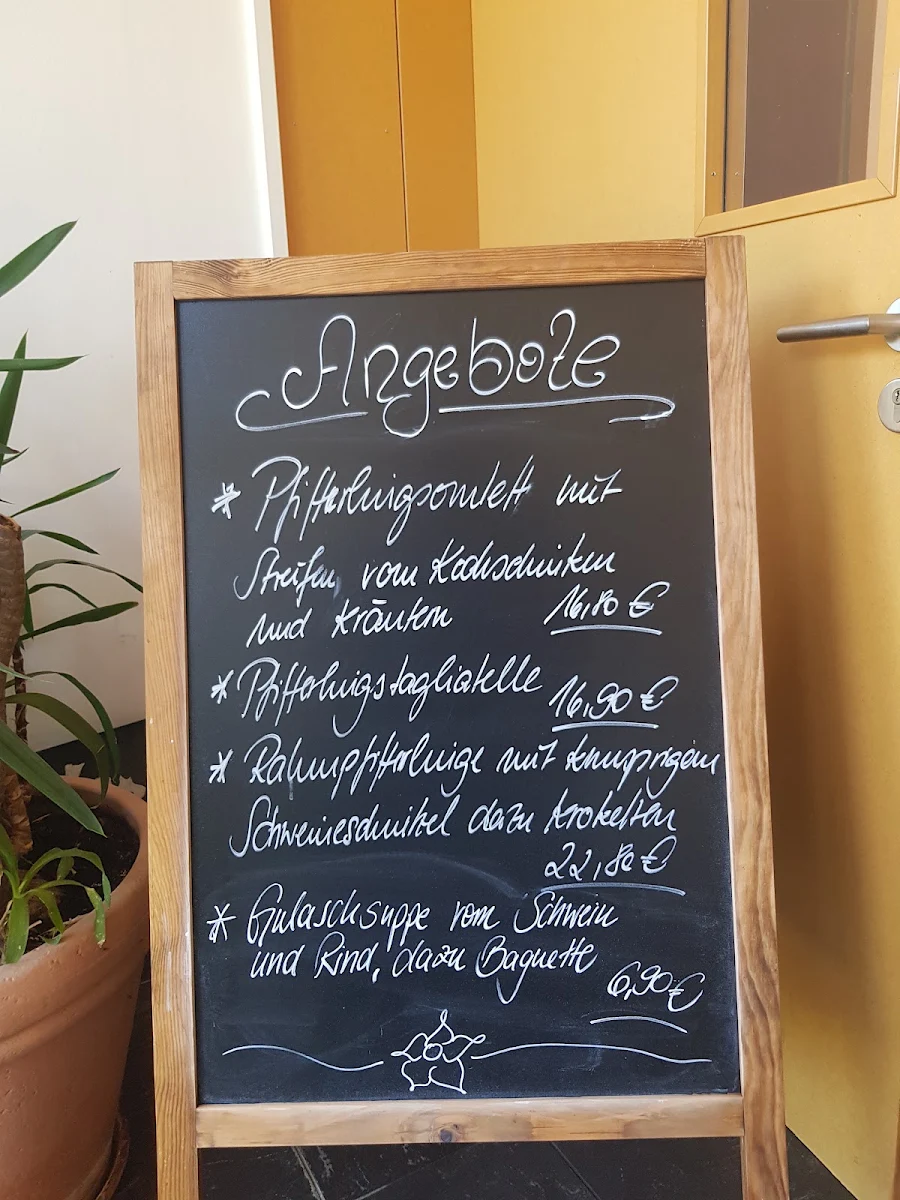 Angebote
* Pfifferlingsomlett mit
Streifen vom Kochschinken
und Kräutern 16,80 €
* Pfifferlingstagliatelle 16,90 €
* Rahmpfifferlinge mit knusprigem
Schweineschnitzel dazu Kroketten
22,80 €
* Gulaschsuppe vom Schwein
und Rind, dazu Baguette
6,90 €